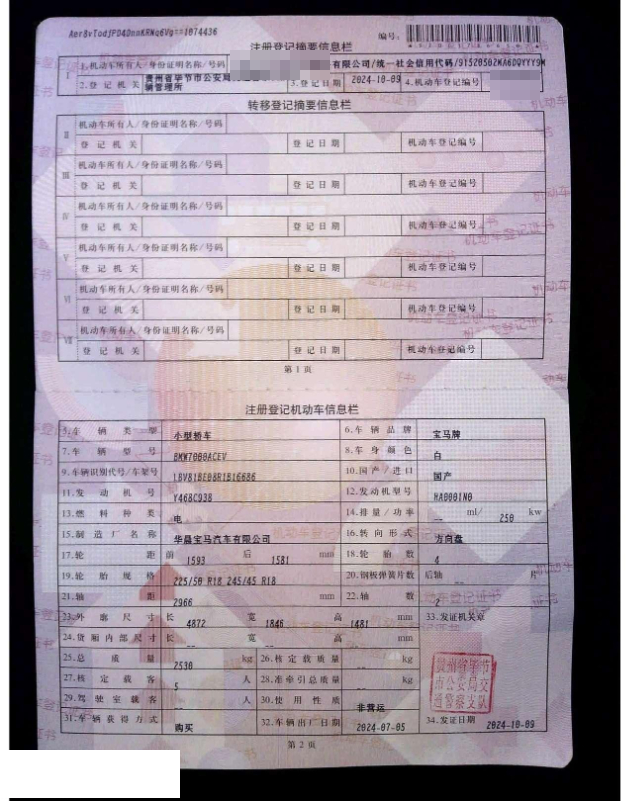 Aer8vTodjPD4DnoKRNq6Vg==1074436
编号:
注册登记摘要信息栏
I 1.机动车所有人/身份证明名称/号码 有限公司/统一社会信用代码/91520502MA6DQYYY9M
2.登记机关 贵州省毕节市公安局 辆管理所 3.登记日期 2024-10-09 4.机动车登记编号
转移登记摘要信息栏
II 机动车所有人/身份证明名称/号码
登记机关 登记日期 机动车登记编号
III 机动车所有人/身份证明名称/号码
登记机关 登记日期 机动车登记编号
IV 机动车所有人/身份证明名称/号码
登记机关 登记日期 机动车登记编号
V 机动车所有人/身份证明名称/号码
登记机关 登记日期 机动车登记编号
VI 机动车所有人/身份证明名称/号码
登记机关 登记日期 机动车登记编号
VII 机动车所有人/身份证明名称/号码
登记机关 登记日期 机动车登记编号
第1页
注册登记机动车信息栏
5.车辆类型 小型轿车 6.车辆品牌 宝马牌
7.车辆型号 BMW7000ACEV 8.车身颜色 白
9.车辆识别代号/车架号 LBV81BE08R1B16686 10.国产/进口 国产
11.发动机号 Y468C938 12.发动机型号 HA0001N0
13.燃料种类 电 14.排量/功率 -- ml/ 250 kw
15.制造厂名称 华晨宝马汽车有限公司 16.转向形式 方向盘
17.轮距 前 1593 后 1581 mm 18.轮胎数 4
19.轮胎规格 225/50 R18 245/45 R18 20.钢板弹簧片数 后轴 -- 片
21.轴距 2966 mm 22.轴数 2
23.外廓尺寸 长 4872 宽 1846 高 1481 mm 33.发证机关章
24.货厢内部尺寸 长 -- 宽 -- 高 -- mm
25.总质量 2530 kg 26.核定载质量 -- kg
27.核定载客 5 人 28.准牵引总质量 -- kg
29.驾驶室载客 -- 人 30.使用性质 非营运
31.车辆获得方式 购买 32.车辆出厂日期 2024-07-05 34.发证日期 2024-10-09
贵州省毕节
市公安局交
通警察支队
第2页